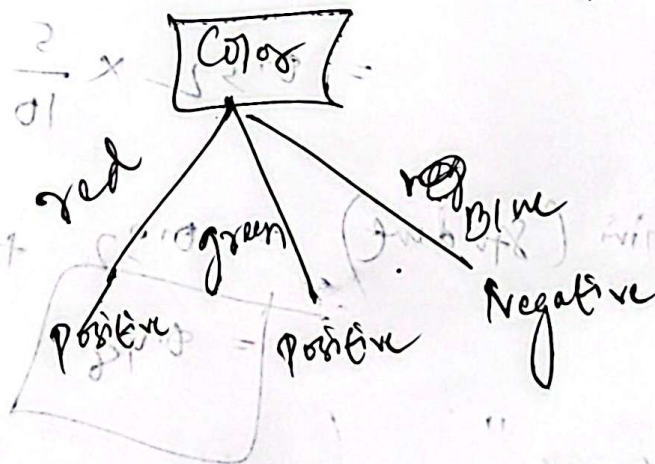 Color
red
green
Blue
Positive
Positive
Negative